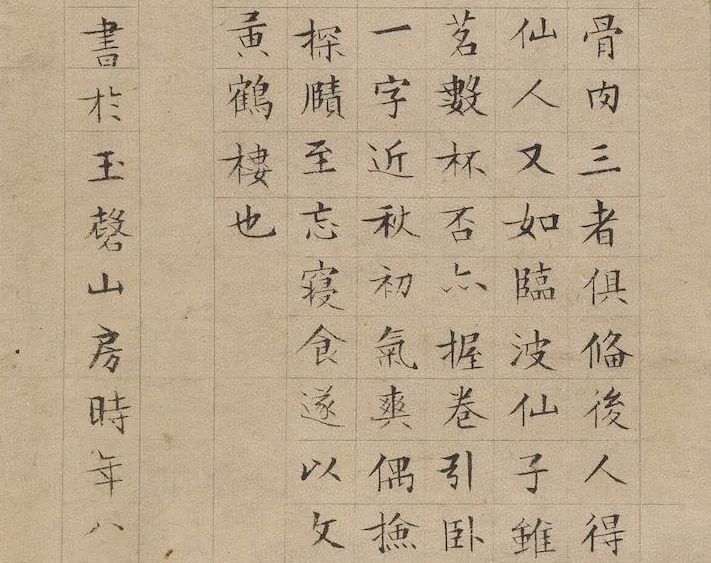 骨肉三者俱俻後人得
仙人又如臨波仙子雖
茗數杯否亦握卷引卧
一字近秋初氣爽偶撿
探賾至忘寝食遂以文
黄鶴樓也
書於玉磬山房時年八